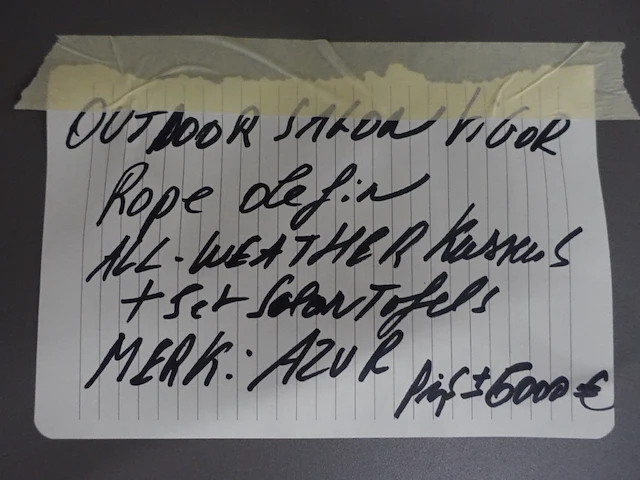 OUTDOOR SALON VIGOR
Rope olefin
ALL-WEATHER Kussens
+ Set SalonTafels
MERK: AZUR
Prijs ± 6000 €